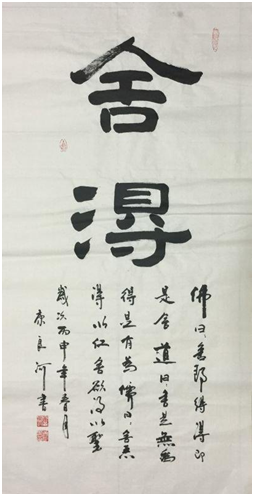 舍得
佛曰舍即得得即
是舍道曰舍是無為
得是有為儒曰舍惡
得以仁舍欲得以聖
歲次丙申年春月
康良河書